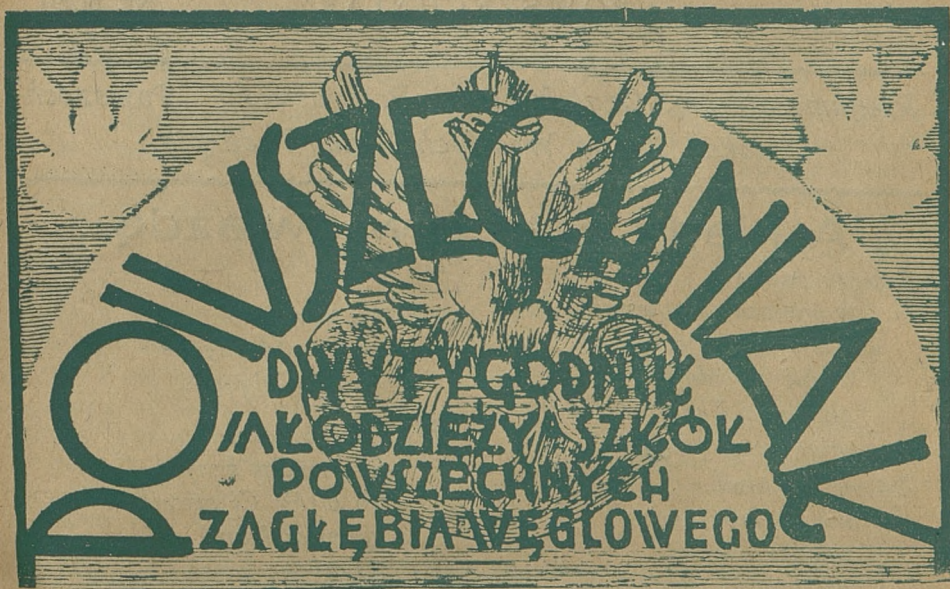 POWSZECHNIAK
DWYTYGODNIK
MŁODZIEŻY SZKÓŁ
POWSZECHNYCH
ZAGŁĘBIA WĘGLOWEGO